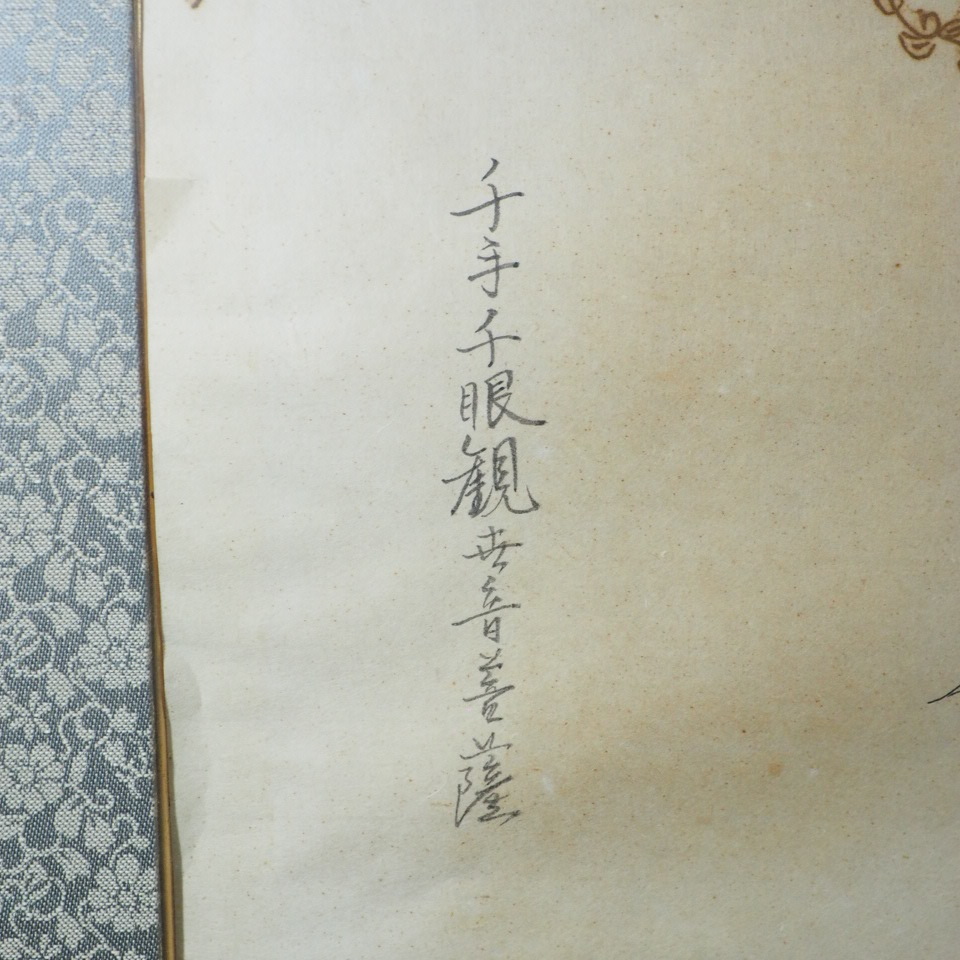 千手千眼観世音菩薩